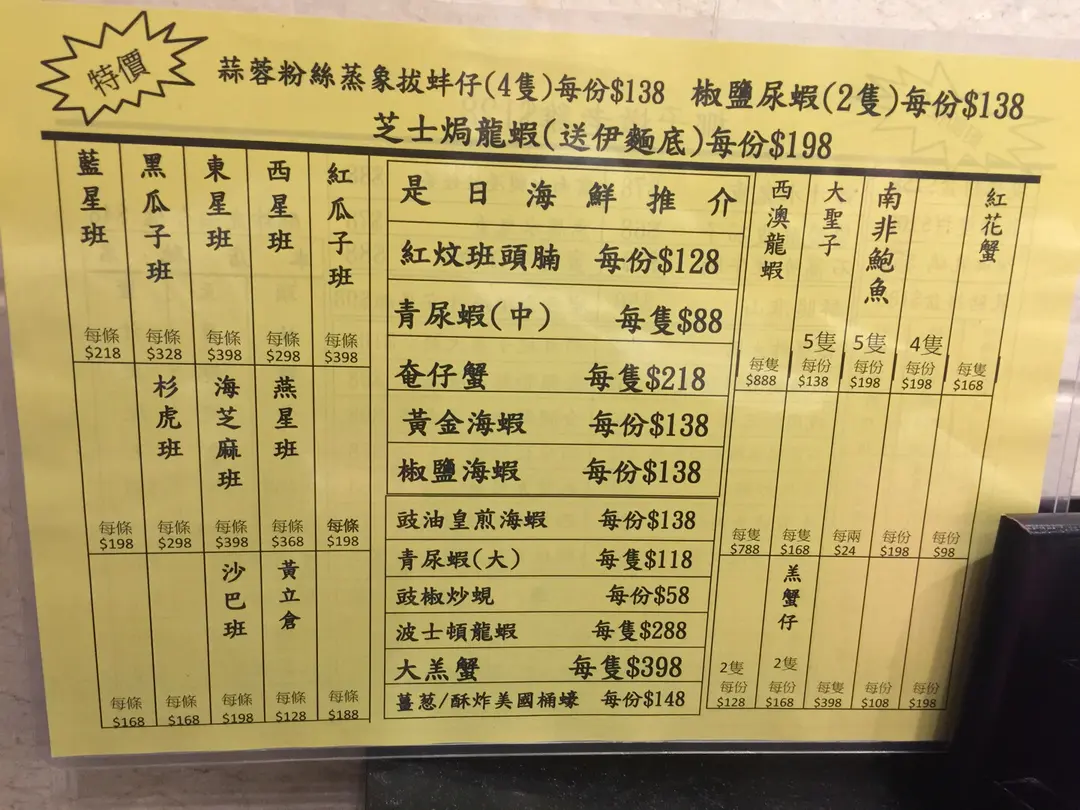 特價
蒜蓉粉絲蒸象拔蚌仔(4隻)每份$138 椒鹽尿蝦(2隻)每份$138
芝士焗龍蝦(送伊麵底)每份$198
藍星班
每條
$218
黑瓜子班
每條
$328
東星班
每條
$398
西星班
每條
$298
紅瓜子班
每條
$398
每條
$198
杉虎班
每條
$298
海芝麻班
每條
$398
燕星班
每條
$368
每條
$198
每條
$168
每條
$168
沙巴班
每條
$198
黃立倉
每條
$128
每條
$188
是日海鮮推介
紅炆班頭腩 每份$128
青尿蝦(中) 每隻$88
奄仔蟹 每隻$218
黃金海蝦 每份$138
椒鹽海蝦 每份$138
豉油皇煎海蝦 每份$138
青尿蝦(大) 每隻$118
豉椒炒蜆 每份$58
波士頓龍蝦 每隻$288
大羔蟹 每隻$398
薑葱/酥炸美國桶蠔 每份$148
西澳龍蝦
每隻
$888
大聖子
5隻
每份
$138
南非鮑魚
5隻
每份
$198
4隻
每份
$198
紅花蟹
每隻
$168
每隻
$788
每隻
$168
每兩
$24
每份
$198
每份
$98
2隻
每份
$128
羔蟹仔
2隻
每份
$168
每隻
$398
每份
$108
每份
$198